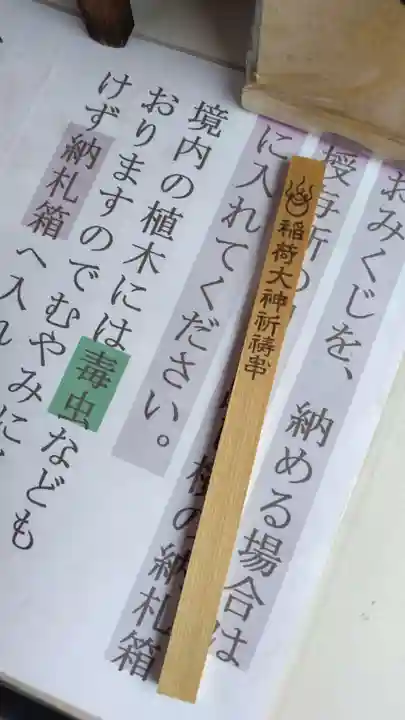 おみくじを、納める場合は
授与所の
に入れてください。
の納札箱
境内の植木には毒虫なども
おりますのでむやみに
けず納札箱へ入れ
稲荷大神祈祷串